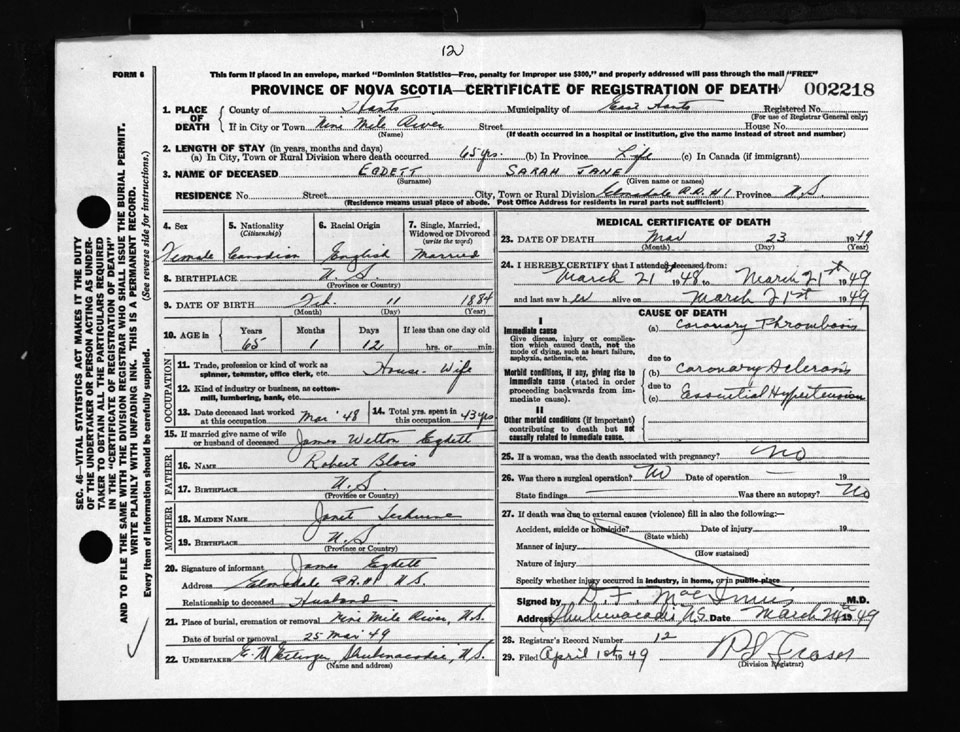 12
FORM 6
This form if placed in an envelope, marked "Dominion Statistics—Free, penalty for improper use $300," and properly addressed will pass through the mail "FREE"
PROVINCE OF NOVA SCOTIA—CERTIFICATE OF REGISTRATION OF DEATH 002218
1. PLACE OF DEATH
County of Hants Municipality of East Hants Registered No.
(For use of Registrar General only)
If in City or Town Nine Mile River Street House No.
(Name) (If death occurred in a hospital or institution, give the name instead of street and number)
2. LENGTH OF STAY (in years, months and days)
(a) In City, Town or Rural Division where death occurred 65 yrs. (b) In Province Life (c) In Canada (if immigrant)
3. NAME OF DECEASED EGDETT SARAH JANE
(Surname) (Given name or names)
RESIDENCE No. Street City, Town or Rural Division Elmsdale R.R. #1 Province N.S
(Residence means usual place of abode. Post Office Address for residents in rural parts not sufficient)
4. Sex 5. Nationality 6. Racial Origin 7. Single, Married,
(Citizenship) Widowed or Divorced
(write the word)
Female Canadian English Married
8. BIRTHPLACE N.S.
(Province or Country)
9. DATE OF BIRTH Feb. 11 1884
(Month) (Day) (Year)
10. AGE in Years Months Days If less than one day old
65 1 12 hrs. or min.
OCCUPATION
11. Trade, profession or kind of work as spinner, teamster, office clerk, etc. House-Wife
12. Kind of industry or business, as cotton-mill, lumbering, bank, etc.
13. Date deceased last worked at this occupation Mar '48 14. Total yrs. spent in this occupation 43 yrs.
15. If married give name of wife or husband of deceased James Welton Egdett
FATHER
16. NAME Robert Blois
17. BIRTHPLACE N.S.
(Province or Country)
MOTHER
18. MAIDEN NAME Janet
19. BIRTHPLACE N.S
(Province or Country)
20. Signature of informant James Egdett
Address Elmsdale R.R. #1 N.S.
Relationship to deceased Husband
21. Place of burial, cremation or removal Nine Mile River, N.S.
Date of burial or removal 25 Mar '49
22. UNDERTAKER E. M. Shubenacadie, N.S.
(Name and address)
MEDICAL CERTIFICATE OF DEATH
23. DATE OF DEATH Mar 23 1949
(Month) (Day) (Year)
24. I HEREBY CERTIFY that I attended deceased from:
March 21 1948 to March 21st 1949
and last saw her alive on March 21st 1949
CAUSE OF DEATH
I
Immediate cause
Give disease, injury or complication which caused death, not the mode of dying, such as heart failure, asphyxia, asthenia, etc.
(a) Coronary Thrombosis
due to
Morbid conditions, if any, giving rise to immediate cause (stated in order proceeding backwards from immediate cause).
(b) Coronary Sclerosis
due to
(c) Essential Hypertension
II
Other morbid conditions (if important) contributing to death but not causally related to immediate cause.
25. If a woman, was the death associated with pregnancy? No
26. Was there a surgical operation? No Date of operation 19
State findings Was there an autopsy? No
27. If death was due to external causes (violence) fill in also the following:—
Accident, suicide or homicide? Date of injury 19
(State which)
Manner of injury
(How sustained)
Nature of injury
Specify whether injury occurred in industry, in home, or in public place
Signed by D. F. MacInnis M.D.
Address Shubenacadie N.S. Date March 24th 1949
28. Registrar's Record Number 12
29. Filed April 1st 1949 Fraser
(Division Registrar)
SEC. 46—VITAL STATISTICS ACT MAKES IT THE DUTY
OF THE UNDERTAKER OR PERSON ACTING AS UNDER-
TAKER TO OBTAIN ALL THE PARTICULARS REQUIRED
IN THE "CERTIFICATE OF REGISTRATION OF DEATH"
AND TO FILE THE SAME WITH THE DIVISION REGISTRAR WHO SHALL ISSUE THE BURIAL PERMIT.
WRITE PLAINLY WITH UNFADING INK. THIS IS A PERMANENT RECORD.
Every item of information should be carefully supplied. (See reverse side for instructions.)